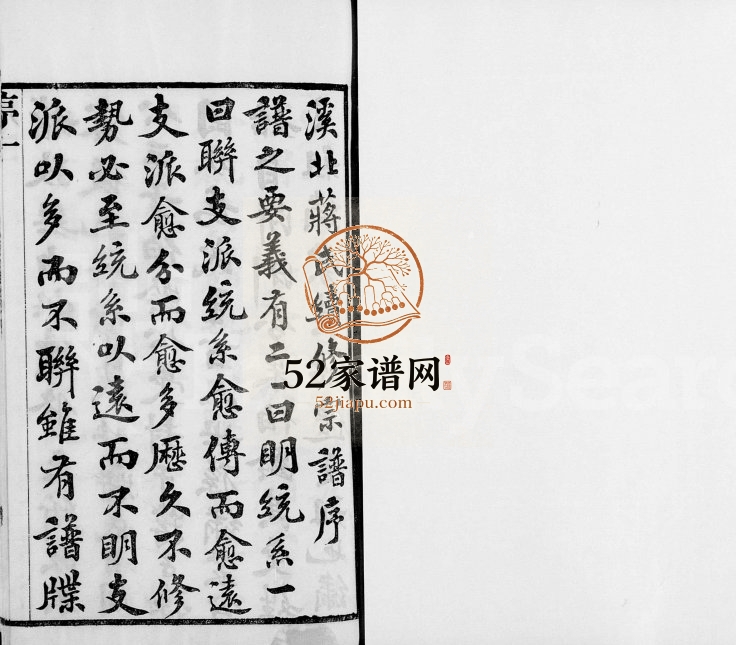 溪北蔣氏續修宗譜序
譜之要義有二一曰明統系一
曰聯支派統系愈傳而愈遠
支派愈分而愈多歷久不修
勢必至統系以遠而不明支
派以多而不聯雖有譜牒
序一
52家谱网
52jiapu.com